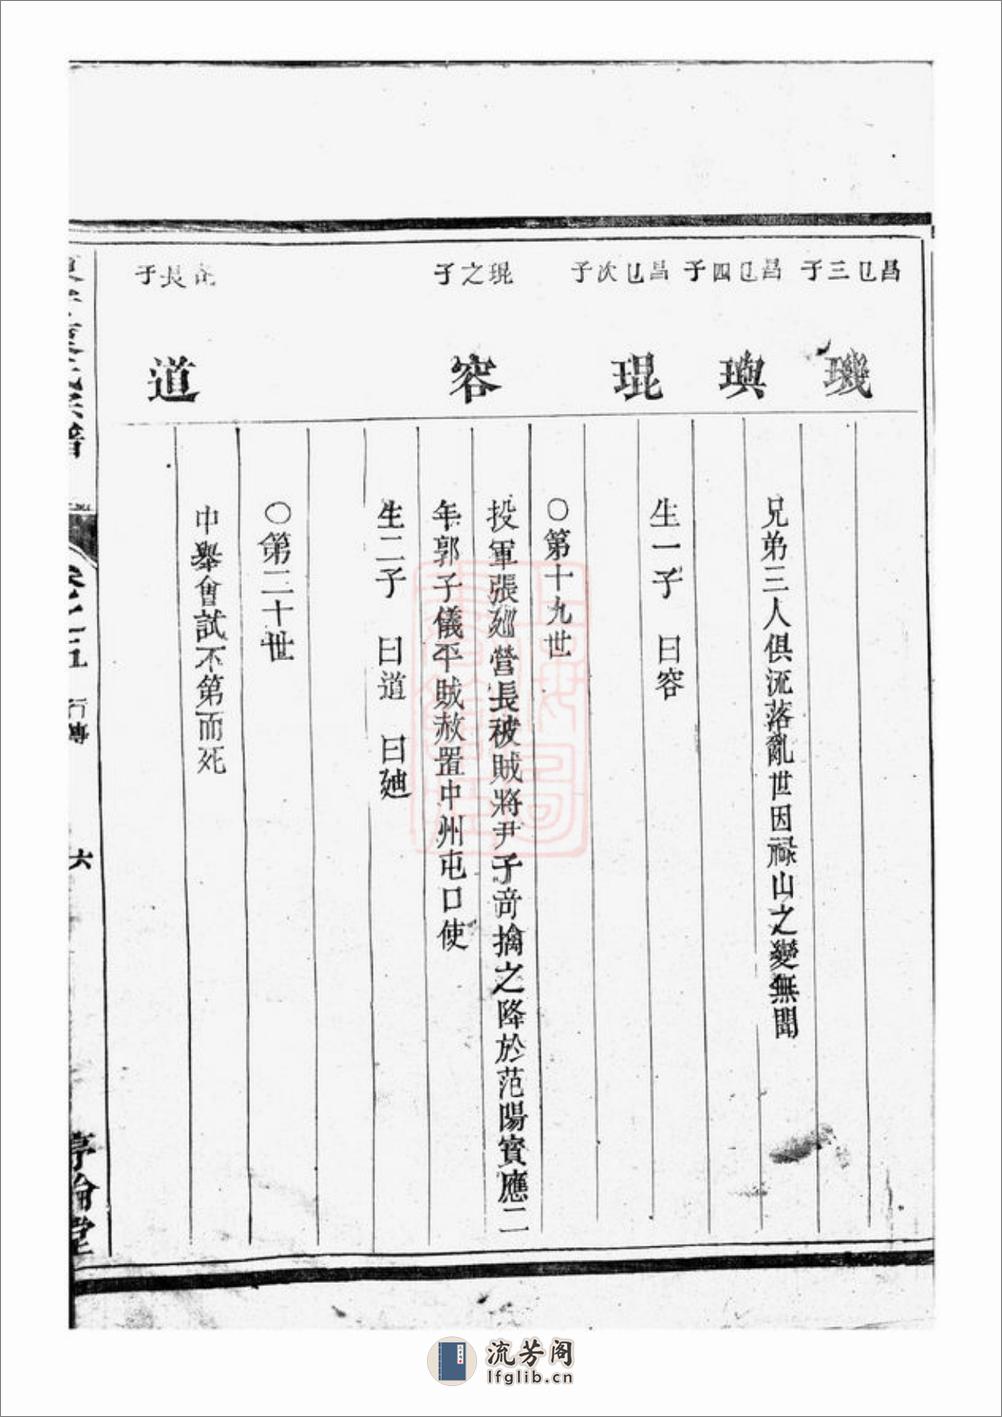 昌㔾三子
璣
昌㔾四子
璵
兄弟三人俱流落亂世因祿山之變無聞
昌㔾次子
琨
生一子 曰容
〇第十九世
琨之子
容
投軍張廵營長被賊將尹子竒擒之降於范陽寳應二
年郭子儀平賊赦置中州屯口使
生二子 曰道 曰廸
〇第二十世
長子
道
中舉會試不第而死
卷之五
行傳
六
流芳阁
lfglib.cn